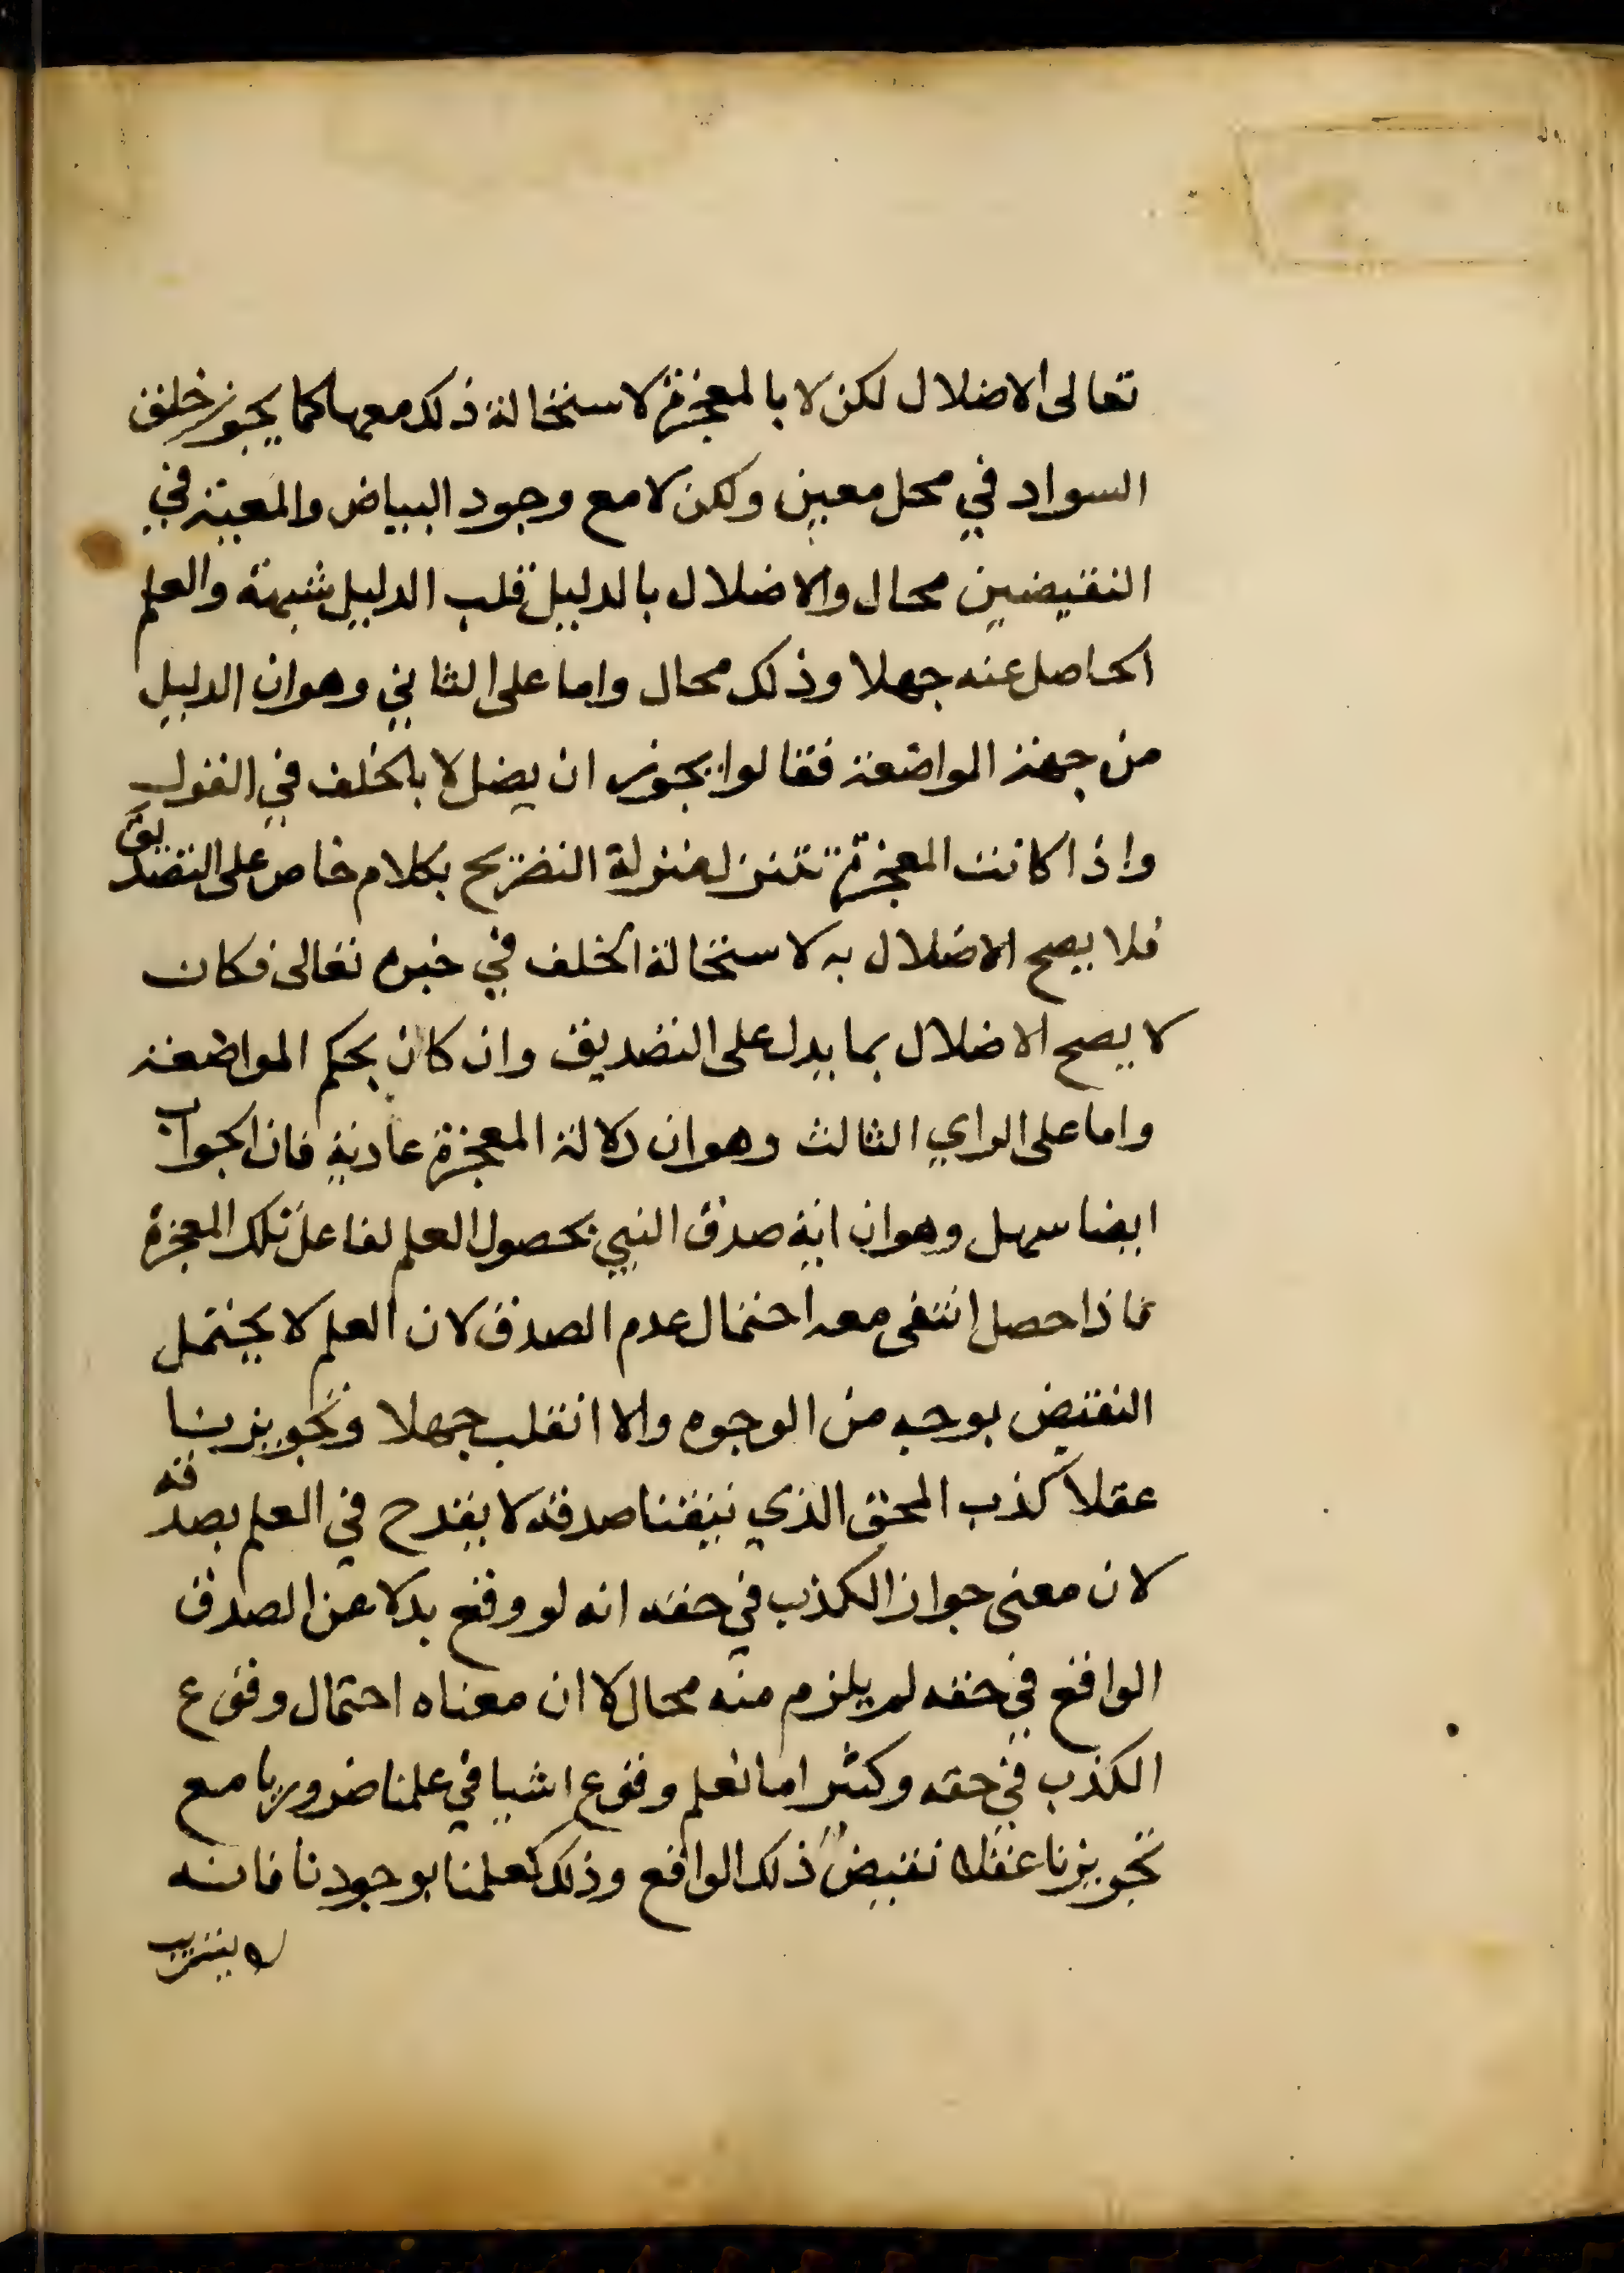 تعالى الاضلال لكن لا بالمعجزة لاستحالة ذلك معها كما يجوز خلق
السواد في محل معين ولكن لا مع وجود البياض والمعية في
النقيضين محال والاضلال بالدليل قلب الدليل شبهة والعلم
الحاصل عنه جهلا وذلك محال واما على الثاني وهو ان الدليل
من جهة المواضعة فقالوا يجوز ان يضل لا بالخلف في القول
واذا كانت المعجزة تتنزل منزلة التصريح بكلام خاص على التصديق
فلا يصح الاضلال به لاستحالة الخلف في خبره تعالى فكان
لا يصح الاضلال بما يدل على التصديق وان كان بحكم المواضعة
واما على الراي الثالث وهو ان دلالة المعجزة عادية فان الجواب
ايضا سهل وهو ان اية صدق النبي بحصول العلم لفاعل تلك المعجزة
فاذا حصل انتفى معه احتمال عدم الصدق لان العلم لا يحتمل
النقيض بوجه من الوجوه والا انقلب جهلا وتجويزنا
عقلا كذب المحق الذي تيقنا صدقه لا يقدح في العلم بصدقه
لان معنى جواز الكذب في حقه انه لو وقع بدلا عن الصدق
الواقع في حقه لم يلزم منه محال لا ان معناه احتمال وقوع
الكذب في حقه وكثيرا ما نعلم وقوع اشيا في علمنا ضروريا مع
تجويزنا عقلا نقيض ذلك الواقع وذلك كعلمنا بوجودنا فانه
لا يتريب